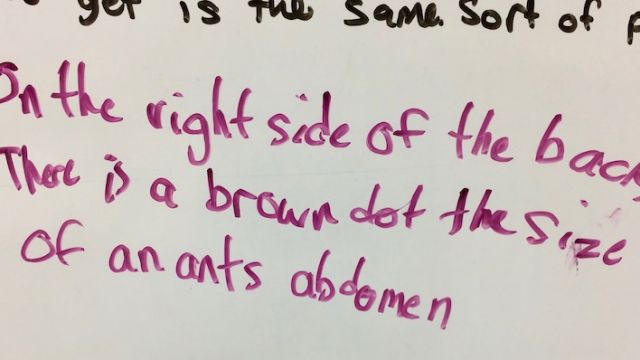 yet is the same sort of
On the right side of the back
There is a brown dot the size
of an ants abdomen